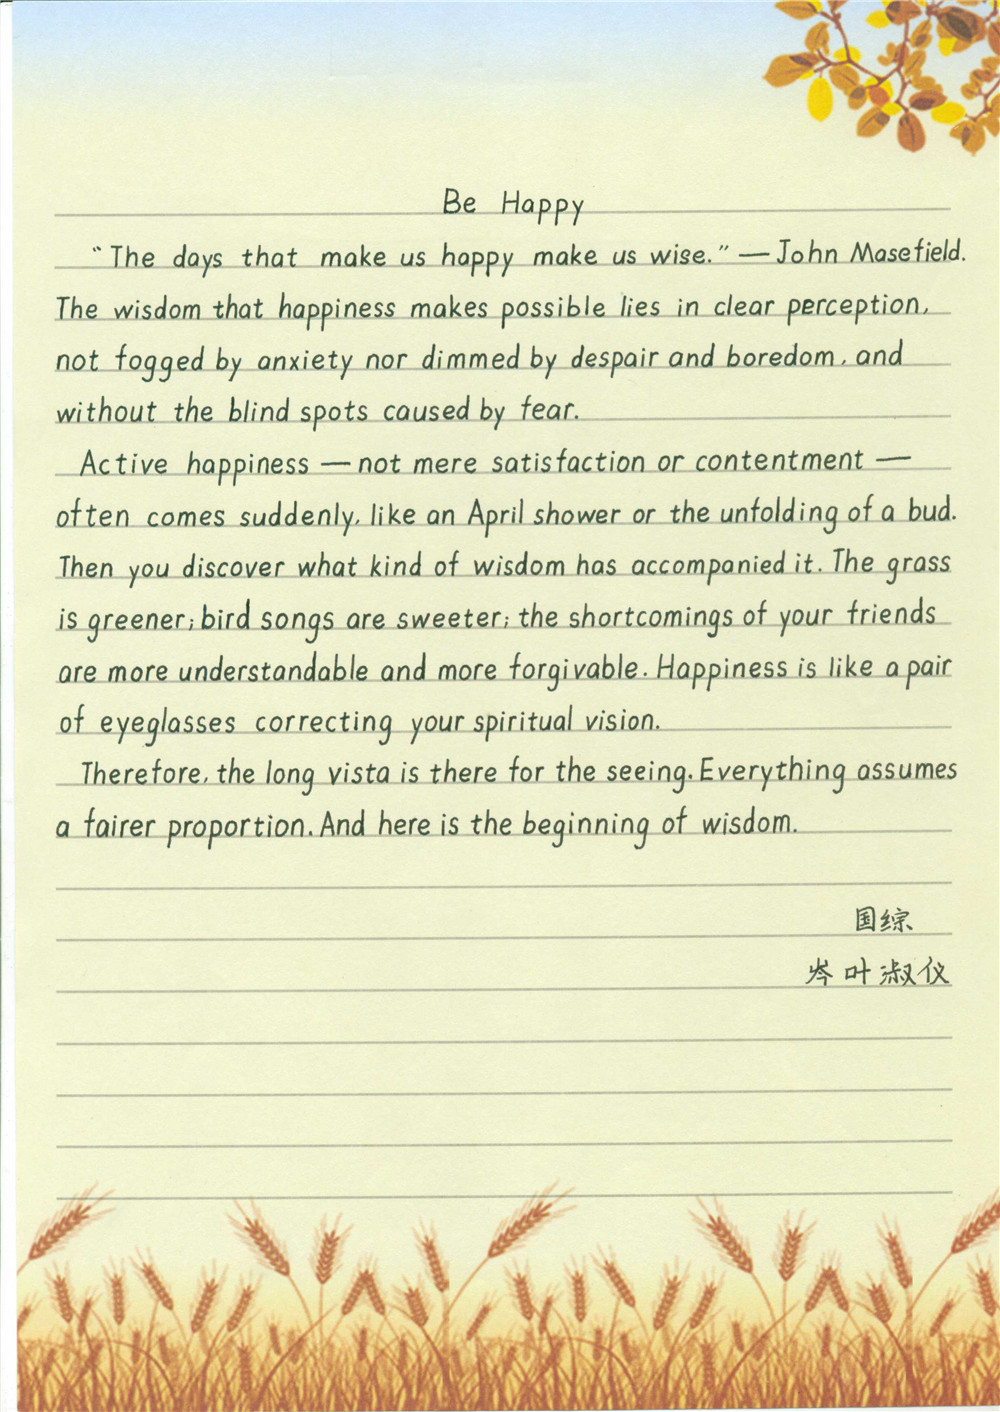 Be Happy
"The days that make us happy make us wise." — John Masefield.
The wisdom that happiness makes possible lies in clear perception,
not fogged by anxiety nor dimmed by despair and boredom, and
without the blind spots caused by fear.
Active happiness — not mere satisfaction or contentment —
often comes suddenly, like an April shower or the unfolding of a bud.
Then you discover what kind of wisdom has accompanied it. The grass
is greener; bird songs are sweeter; the shortcomings of your friends
are more understandable and more forgivable. Happiness is like a pair
of eyeglasses correcting your spiritual vision.
Therefore, the long vista is there for the seeing. Everything assumes
a fairer proportion. And here is the beginning of wisdom.
国综
岑叶淑仪